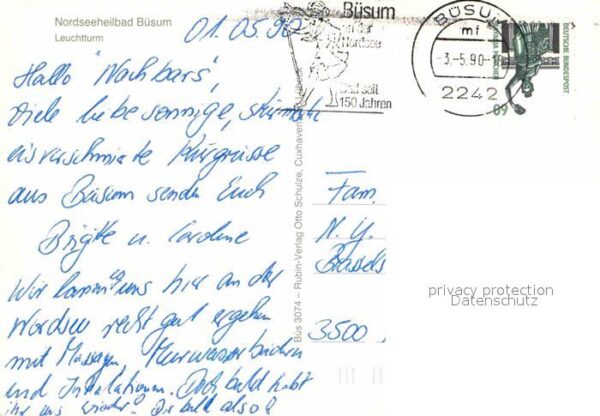 Nordseeheilbad Büsum
Leuchtturm
01.05.90
Hallo "Nachbars",
viele liebe sonnige, stürmische
eisverschmierte Kurgrüsse
aus Büsum senden Euch
Brigitte u. Caroline
Wir lassen es uns hier an der
Nordsee recht gut ergehen
mit Massagen, Meerwasserbädern
und Inhalationen. Doch bald habt
ihr uns wieder! Bis bald also
Büsum
an der
Nordsee
Bad seit
150 Jahren
BÜSUM
mf
-3.-5.90-
2242
DEUTSCHE BUNDESPOST
60
Büs 3074 – Rubin-Verlag Otto Schulze, Cuxhaven
Fam.
N. Y.
3500
privacy protection
Datenschutz